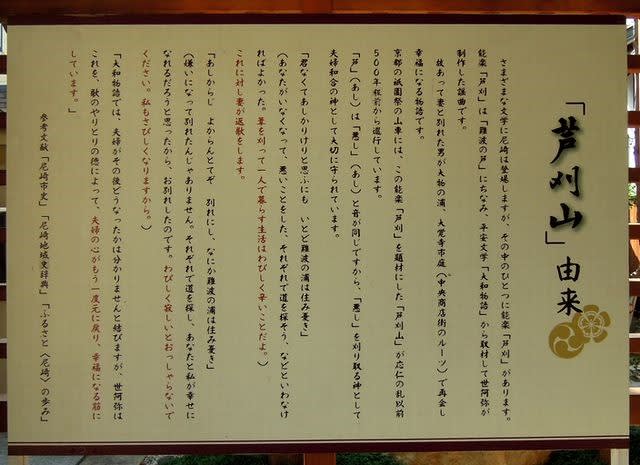 「芦刈山」由来
さまざまな文学に尼崎は登場しますが、その中のひとつに能楽「芦刈」があります。
能楽「芦刈」は「難波の芦」にちなみ、平安文学「大和物語」から取材して世阿弥が
制作した謡曲です。
故あって妻と別れた男が大物の浦、大覚寺市庭（中央商店街のルーツ）で再会し
幸福になる物語です。
京都の祇園祭の山車には、この能楽「芦刈」を題材にした「芦刈山」が応仁の乱以前
500年程前から運行しています。
「芦」（あし）は「悪し」（あし）と音が同じですから、「悪し」を刈り取る神として
夫婦和合の神として大切に守られています。
「君なくてあしかりけりと思ふにも　いとど難波の浦は住み憂き」
（あなたがいなくなって、悪いことをした、それぞれで道を探そう、などといわなけ
ればよかった。葦を刈って一人で暮らす生活はわびしく辛いことだよ。）
これに対し妻が返歌をします。
「あしからじ　よからんとてぞ　別れにし、なにか難波の浦は住み憂き」
（嫌いになって別れたんじゃありません。それぞれで道を探し、あなたと私が幸せに
なれるだろうと思ったから、お別れしたのです。わびしく寂しいとおっしゃらないで
ください。私もさびしくなりますから。）
「大和物語では、夫婦がその後どうなったかは分かりませんと結びますが、世阿弥は
これを、歌のやりとりの徳によって、夫婦の心がもう一度元に戻り、幸福になる筋に
しています。」
参考文献「尼崎市史」「尼崎地域史辞典」「ふるさと〈尼崎〉の歩み」